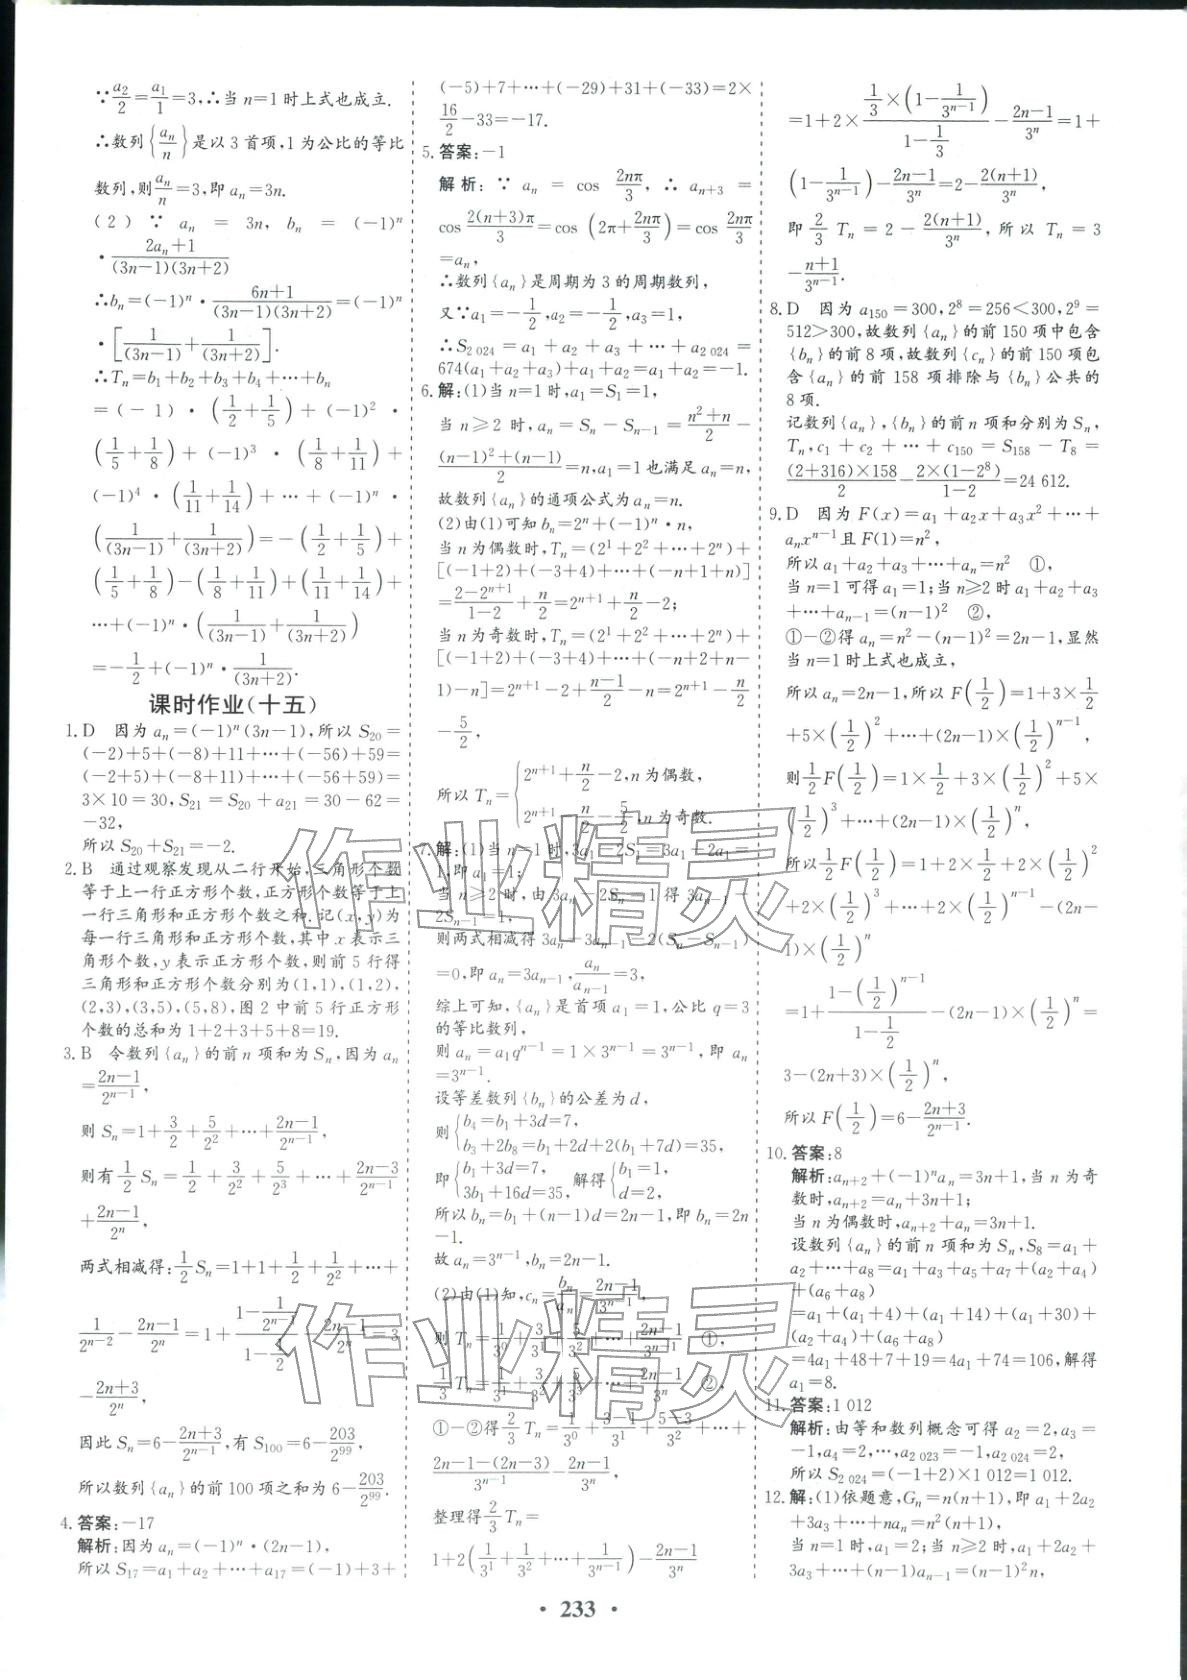 ∵a₂/2=a₁/1=3,∴当 n=1 时上式也成立.
∴数列{aₙ/n}是以 3 首项,1 为公比的等比
数列,则aₙ/n=3,即 aₙ=3n.
(2)∵ aₙ = 3n, bₙ = (-1)ⁿ
·(2aₙ+1)/((3n-1)(3n+2))
∴bₙ=(-1)ⁿ·(6n+1)/((3n-1)(3n+2))=(-1)ⁿ
·[1/(3n-1)+1/(3n+2)].
∴Tₙ=b₁+b₂+b₃+b₄+…+bₙ
=(-1)·(1/2+1/5)+(-1)²·
(1/5+1/8)+(-1)³·(1/8+1/11)+
(-1)⁴·(1/11+1/14)+…+(-1)ⁿ·
(1/(3n-1)+1/(3n+2))=-(1/2+1/5)+
(1/5+1/8)-(1/8+1/11)+(1/11+1/14)+
…+(-1)ⁿ·(1/(3n-1)+1/(3n+2))
=-1/2+(-1)ⁿ·1/(3n+2).
课时作业(十五)
1. D 因为 aₙ=(-1)ⁿ(3n-1),所以 S₂₀=
(-2)+5+(-8)+11+…+(-56)+59=
(-2+5)+(-8+11)+…+(-56+59)=
3×10=30,S₂₁=S₂₀+a₂₁=30-62=
-32,
所以 S₂₀+S₂₁=-2.
2. B 通过观察发现从二行开始,三角形个数
等于上一行正方形个数,正方形个数等于上
一行三角形和正方形个数之和.记(x,y)为
每一行三角形和正方形个数,其中 x 表示三
角形个数,y 表示正方形个数,则前 5 行得
三角形和正方形个数分别为(1,1),(1,2),
(2,3),(3,5),(5,8),图 2 中前 5 行正方形
个数的总和为 1+2+3+5+8=19.
3. B 令数列{aₙ}的前 n 项和为 Sₙ,因为 aₙ
=(2n-1)/2ⁿ⁻¹,
则 Sₙ=1+3/2+5/2²+…+(2n-1)/2ⁿ⁻¹,
则有1/2 Sₙ=1/2+3/2²+5/2³+…+(2n-3)/2ⁿ⁻¹
+(2n-1)/2ⁿ,
两式相减得:1/2 Sₙ=1+1+1/2+1/2²+…+
1/2ⁿ⁻²-(2n-1)/2ⁿ=1+(1-1/2ⁿ⁻¹)/(1-1/2)-(2n-1)/2ⁿ=3
-(2n+3)/2ⁿ,
因此 Sₙ=6-(2n+3)/2ⁿ⁻¹,有 S₁₀₀=6-203/2⁹⁹,
所以数列{aₙ}的前 100 项之和为 6-203/2⁹⁹.
4. 答案:-17
解析:因为 aₙ=(-1)ⁿ·(2n-1),
所以 S₁₇=a₁+a₂+…+a₁₇=(-1)+3+
(-5)+7+…+(-29)+31+(-33)=2×
16/2-33=-17.
5. 答案:-1
解析:∵ aₙ = cos 2nπ/3, ∴ aₙ₊₃ =
cos 2(n+3)π/3=cos(2π+2nπ/3)=cos 2nπ/3
=aₙ,
∴数列{aₙ}是周期为 3 的周期数列,
又∵a₁=-1/2,a₂=-1/2,a₃=1,
∴S₂ ₀₂₄=a₁+a₂+a₃+…+a₂ ₀₂₄=
674(a₁+a₂+a₃)+a₁+a₂=a₁+a₂=-1.
6. 解:(1)当 n=1 时,a₁=S₁=1,
当 n≥2 时,aₙ=Sₙ-Sₙ₋₁=(n²+n)/2-
((n-1)²+(n-1))/2=n,a₁=1 也满足 aₙ=n,
故数列{aₙ}的通项公式为 aₙ=n.
(2)由(1)可知 bₙ=2ⁿ+(-1)ⁿ·n,
当 n 为偶数时,Tₙ=(2¹+2²+…+2ⁿ)+
[(-1+2)+(-3+4)+…+(-n+1+n)]
=(2-2ⁿ⁺¹)/(1-2)+n/2=2ⁿ⁺¹+n/2-2;
当 n 为奇数时,Tₙ=(2¹+2²+…+2ⁿ)+
[(-1+2)+(-3+4)+…+(-n+2+n-
1)-n]=2ⁿ⁺¹-2+(n-1)/2-n=2ⁿ⁺¹-n/2
-5/2,
所以 Tₙ={2ⁿ⁺¹+n/2-2,n 为偶数,
2ⁿ⁺¹-n/2-5/2,n 为奇数.
7. 解:(1)当 n=1 时,3a₁-2S₁=3a₁-2a₁=
1,即 a₁=1;
当 n≥2 时,由 3aₙ-2Sₙ=1 得 3aₙ₋₁-
2Sₙ₋₁=1,
则两式相减得 3aₙ-3aₙ₋₁-2(Sₙ-Sₙ₋₁)
=0,即 aₙ=3aₙ₋₁,aₙ/aₙ₋₁=3,
综上可知,{aₙ}是首项 a₁=1,公比 q=3
的等比数列,
则 aₙ=a₁qⁿ⁻¹=1×3ⁿ⁻¹=3ⁿ⁻¹,即 aₙ
=3ⁿ⁻¹.
设等差数列{bₙ}的公差为 d,
则{b₄=b₁+3d=7,
b₃+2b₈=b₁+2d+2(b₁+7d)=35,
即{b₁+3d=7, 3b₁+16d=35, 解得{b₁=1, d=2,
所以 bₙ=b₁+(n-1)d=2n-1,即 bₙ=2n
-1.
故 aₙ=3ⁿ⁻¹,bₙ=2n-1.
(2)由(1)知,cₙ=bₙ/aₙ=(2n-1)/3ⁿ⁻¹,
则 Tₙ=1/3⁰+3/3¹+5/3²+…+(2n-1)/3ⁿ⁻¹ ①,
1/3 Tₙ=1/3¹+3/3²+5/3³+…+(2n-1)/3ⁿ ②,
①-②得2/3 Tₙ=1/3⁰+(3-1)/3¹+(5-3)/3²+…+
(2n-1-(2n-3))/3ⁿ⁻¹-(2n-1)/3ⁿ,
整理得2/3 Tₙ=
1+2(1/3¹+1/3²+…+1/3ⁿ⁻¹)-(2n-1)/3ⁿ
=1+2×(1/3×(1-1/3ⁿ⁻¹))/(1-1/3)-(2n-1)/3ⁿ=1+
(1-1/3ⁿ⁻¹)-(2n-1)/3ⁿ=2-2(n+1)/3ⁿ,
即 2/3 Tₙ=2-2(n+1)/3ⁿ,所以 Tₙ=3
-(n+1)/3ⁿ⁻¹.
8. D 因为 a₁₅₀=300,2⁸=256<300,2⁹=
512>300,故数列{aₙ}的前 150 项中包含
{bₙ}的前 8 项,故数列{cₙ}的前 150 项包
含{aₙ}的前 158 项排除与{bₙ}公共的
8 项.
记数列{aₙ},{bₙ}的前 n 项和分别为 Sₙ,
Tₙ,c₁+c₂+…+c₁₅₀=S₁₅₈-T₈=
(2+316)×158/2-2×(1-2⁸)/(1-2)=24 612.
9. D 因为 F(x)=a₁+a₂x+a₃x²+…+
aₙxⁿ⁻¹且 F(1)=n²,
所以 a₁+a₂+a₃+…+aₙ=n² ①,
当 n=1 可得 a₁=1;当 n≥2 时 a₁+a₂+a₃
+…+aₙ₋₁=(n-1)² ②,
①-②得 aₙ=n²-(n-1)²=2n-1,显然
当 n=1 时上式成立,
所以 aₙ=2n-1,所以 F(1/2)=1+3×1/2
+5×(1/2)²+…+(2n-1)×(1/2)ⁿ⁻¹,
则1/2F(1/2)=1×1/2+3×(1/2)²+5×
(1/2)³+…+(2n-1)×(1/2)ⁿ,
所以1/2F(1/2)=1+2×1/2+2×(1/2)²
+2×(1/2)³+…+2×(1/2)ⁿ⁻¹-(2n-
1)×(1/2)ⁿ
=1+(1-(1/2)ⁿ⁻¹)/(1-1/2)-(2n-1)×(1/2)ⁿ=
3-(2n+3)×(1/2)ⁿ,
所以 F(1/2)=6-(2n+3)/2ⁿ⁻¹.
10. 答案:8
解析:aₙ₊₂+(-1)ⁿaₙ=3n+1,当 n 为奇
数时,aₙ₊₂=aₙ+3n+1;
当 n 为偶数时,aₙ₊₂+aₙ=3n+1.
设数列{aₙ}的前 n 项和为 Sₙ,S₈=a₁+
a₂+…+a₈=a₁+a₃+a₅+a₇+(a₂+a₄)
+(a₆+a₈)
=a₁+(a₁+4)+(a₁+14)+(a₁+30)+
(a₂+a₄)+(a₆+a₈)
=4a₁+48+7+19=4a₁+74=106,解得
a₁=8.
11. 答案:1 012
解析:由等和数列概念可得 a₂=2,a₃=
-1,a₄=2,…,a₂ ₀₂₃=-1,a₂ ₀₂₄=2,
所以 S₂ ₀₂₄=(-1+2)×1 012=1 012.
12. 解:(1)依题意,Gₙ=n(n+1),即 a₁+2a₂
+3a₃+…+naₙ=n²(n+1),
当 n=1 时,a₁=2;当 n≥2 时,a₁+2a₂+
3a₃+…+(n-1)aₙ₋₁=(n-1)²n,
作业精灵
作业精灵
· 233 ·